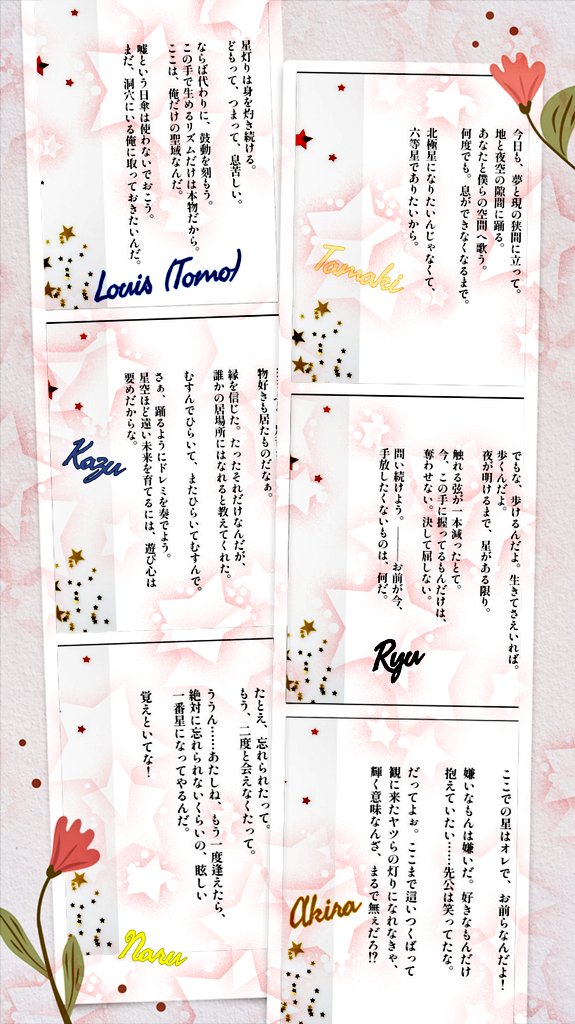 今日も、夢と現の狭間に立って。
地と夜空の隙間に踊る。
あなたと僕らの空間へ歌う。
何度でも。息ができなくなるまで。
北極星になりたいんじゃなくて、
六等星でありたいから。
Tamaki
でもな、歩けるんだよ。生きてさえいれば。
歩くんだよ。
夜が明けるまで、星がある限り。
触れる弦が一本減ったとて。
今、この手に握ってるもんだけは、
奪わせない。決して屈しない。
問い続けよう。――お前が今、
手放したくないものは、何だ。
Ryu
ここでの星はオレで、お前らなんだよ!
嫌いなもんは嫌いだ。好きなもんだけ
抱えていたい……先公は笑ってたな。
だってよぉ。ここまで這いつくばって
観に来たヤツらの灯りになれなきゃ、
輝く意味なんざ、まるで無ぇだろ!?
Akira
星灯りは身を灼き続ける。
どもって、つまって、息苦しい。
ならば代わりに、鼓動を刻もう。
この手で生めるリズムだけは本物だから。
ここは、俺だけの聖域なんだ。
嘘という日傘は使わないでおこう。
まだ、洞穴にいる俺に取っておきたいんだ。
Louis (Tomo)
物好きも居たものだなぁ。
縁を信じた。たったそれだけなんだが、
誰かの居場所にはなれると教えてくれた。
むすんでひらいて、またひらいてむすんで。
さぁ、踊るようにドレミを奏でよう。
星空ほど遠い未来を育てるには、遊び心は
要めだからな。
Kazu
たとえ、忘れられたって。
もう、二度と会えなくたって。
ううん……あたしね、もう一度逢えたら、
絶対に忘れられないくらいの、眩しい
一番星になってやるんだ。
覚えといてな!
Naru